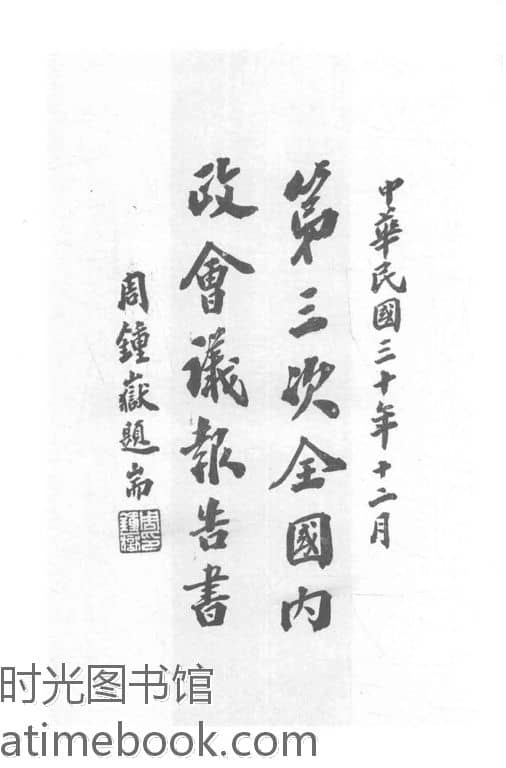 中華民國三十年十二月
第三次全國內
政會議報告書
周鍾嶽題耑
周鍾嶽印
时光图书馆
atimebook.com